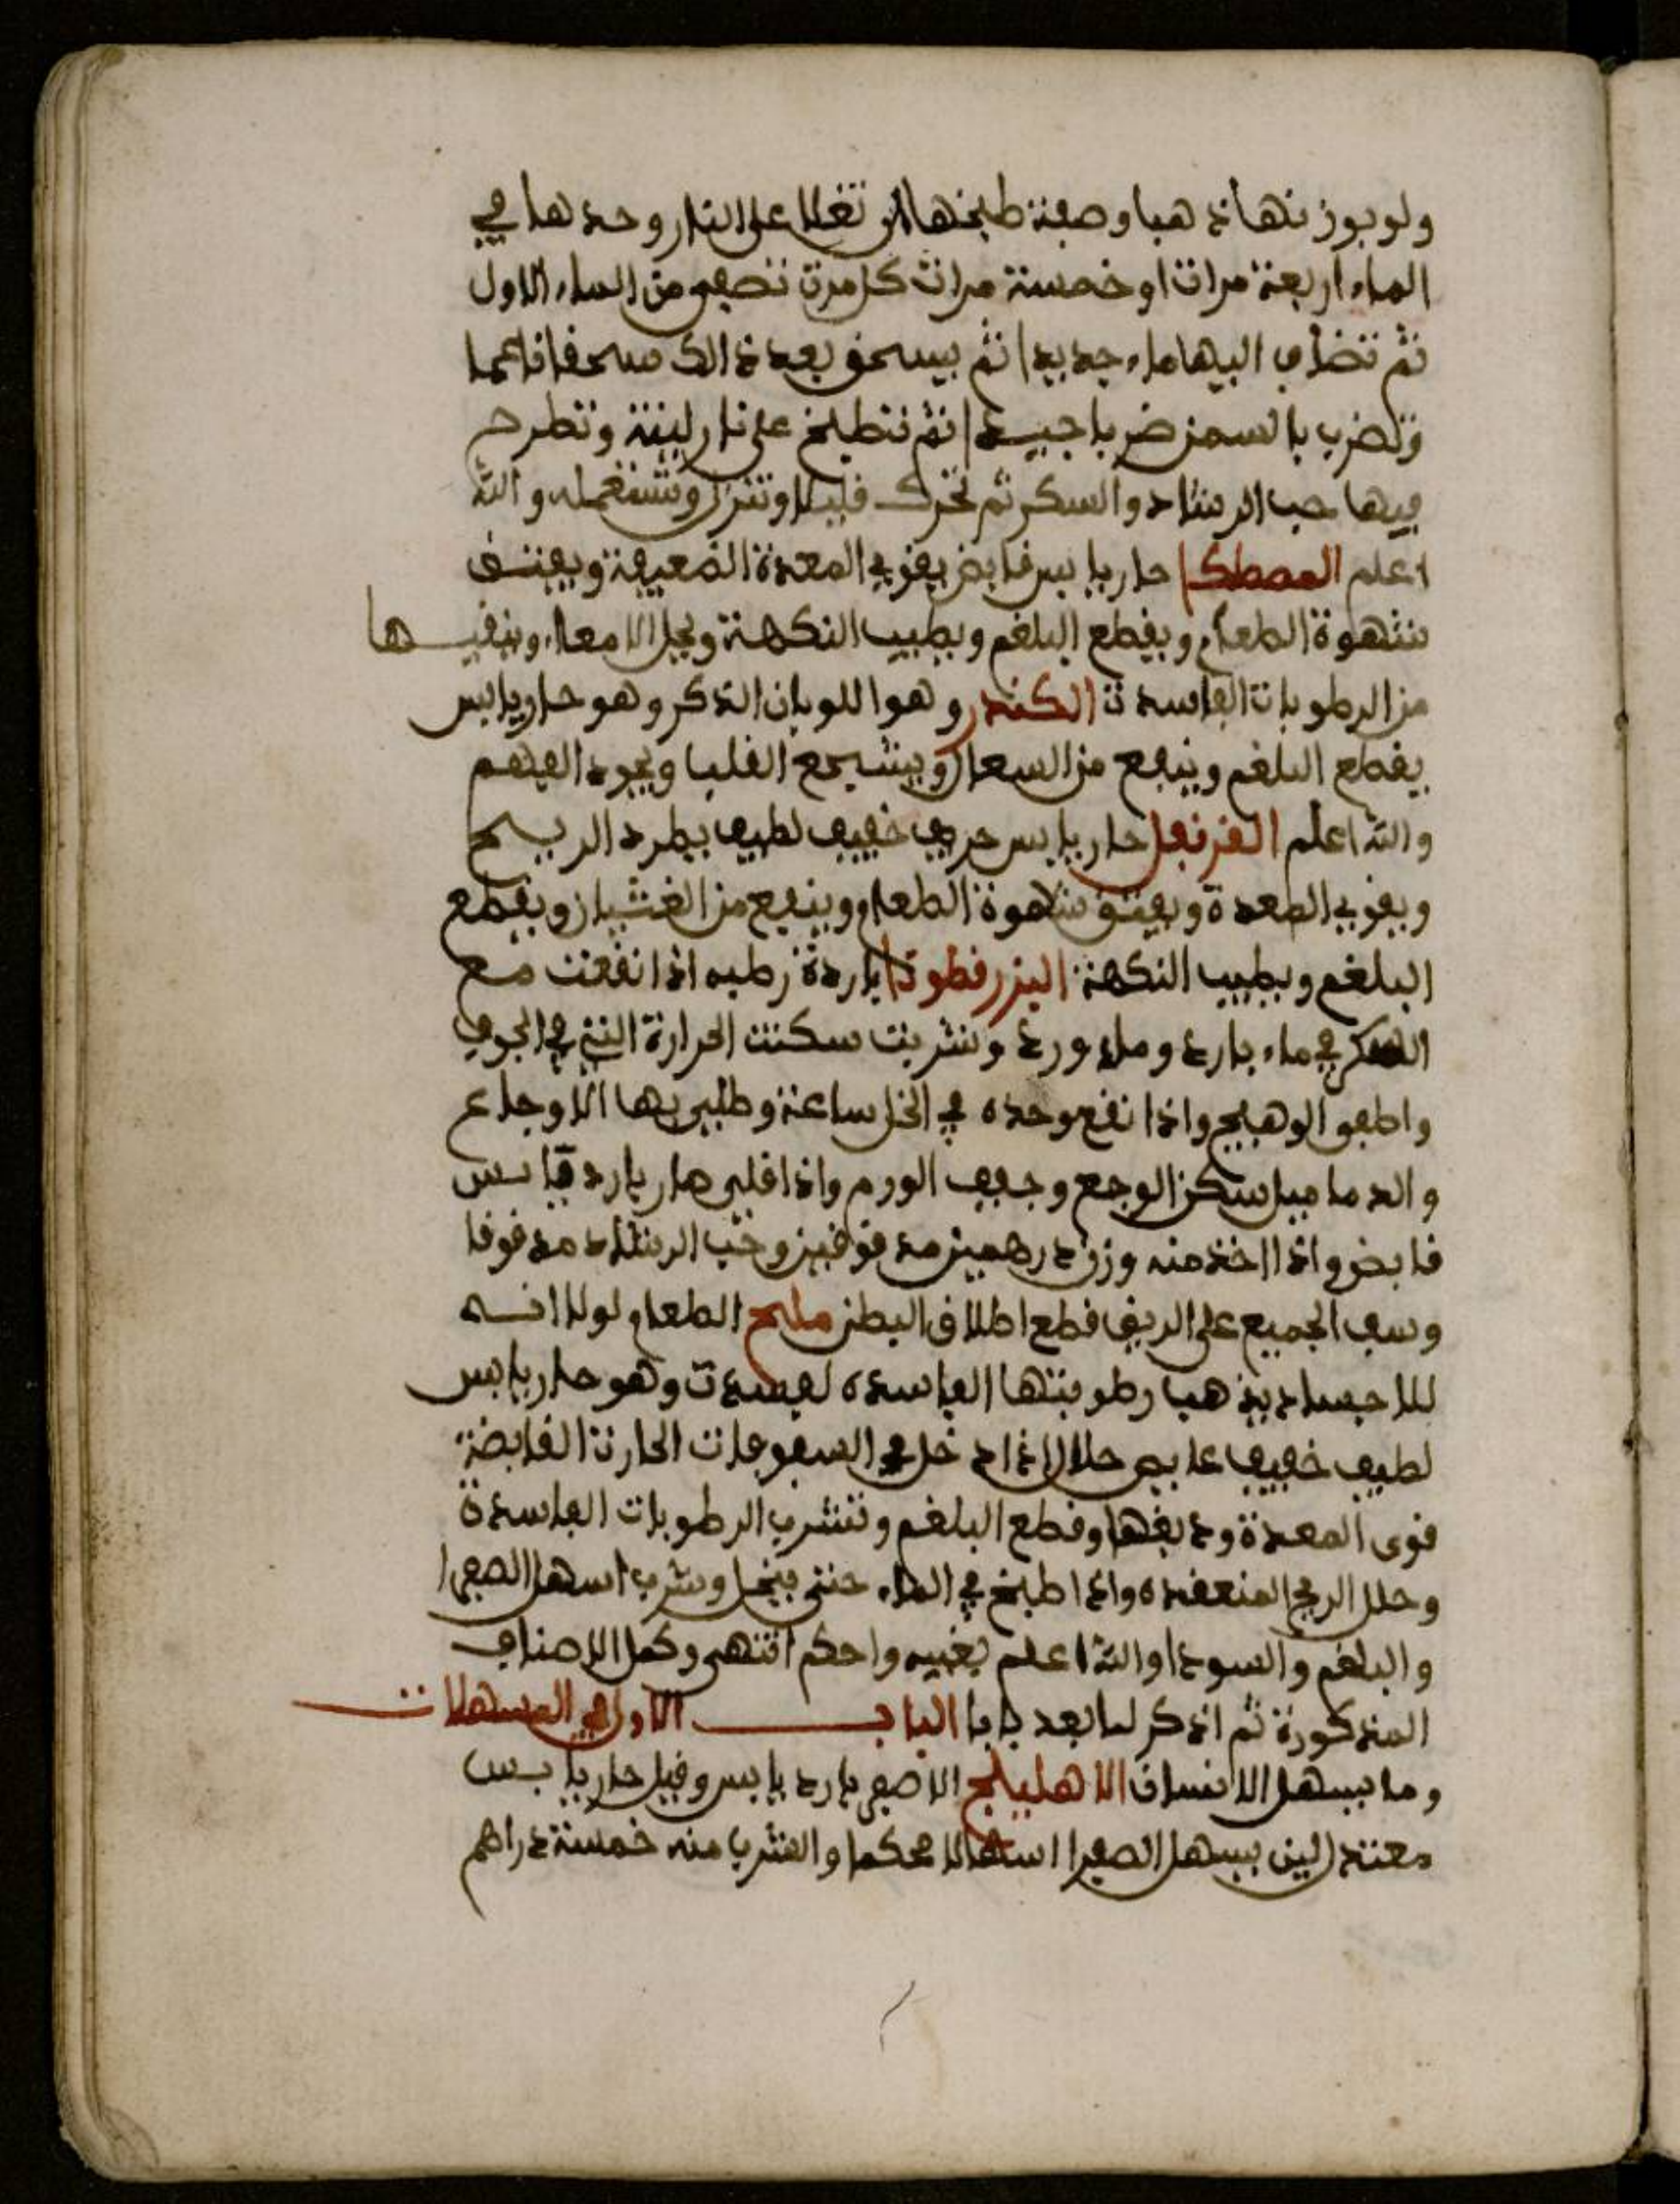 ولو بوزنها ذهبا وصفة طبخها ان تغلا على النار وحدها في
الماء اربعة مرات او خمسة مرات كل مرة تصفى من الماء الاول
ثم تضاف اليها ماء جديدا ثم يسحق بعد ذالك سحقا ناعما
وتضرب بالسمن ضربا جيدا ثم تطبخ على نار لينة وتطرح
فيها حب الرشاد والسكر ثم تحرك قليلا وتنزل وتستعمله والله
اعلم المصطكا حار يابس قابض يقوي المعدة الضعيفة ويفتق
شهوة الطعام ويقطع البلغم ويطيب النكهة ويحل الامعاء وينقيها
من الرطوبات الفاسدة الكندر وهو اللوبان الذكر وهو حار يابس
يقطع البلغم وينفع من السعال ويشجع القلب ويجود الفهم
والله اعلم القرنفل حار يابس حريف خفيف لطيف يطرد الريح
ويقوي المعدة ويفتق شهوة الطعام وينفع من الغشيان ويقطع
البلغم ويطيب النكهة البزرقطونا باردة رطبه اذا نقعت مع
السكر في ماء بارد وماء ورد وشربت سكنت الحرارة التي في الجوف
واطفو الوهيج واذا نقع وحده في الخل ساعة وطلي بها الاوجاع
والدماميل سكن الوجع وجفف الورم واذا قلي صار بارد يابس
قابض واذا اخذ منه وزن درهمين مدقوقين وحب الرشاد مدقوقا
وسف الجميع على الريق قطع اطلاق البطن مليح الطعام لولا انه
للاجساد يذهب رطوبتها الفاسده لفسدت وهو حار يابس
لطيف خفيف حلال اذا دخل في السفوفات الحارة القابضة
قوى المعدة ودبغها وقطع البلغم وتشرب الرطوبات الفاسدة
وحلل الريح المنعقده واذا طبخ في الماء حتى ينحل وشرب اسهل الصفرا
والبلغم والسودا والله اعلم بغيبه واحكم انتهى وكمل الاصناف
المذكورة ثم اذكر لما بعد بابا الباب الاول في المسهلات
وما يسهل الانسان الاهليلج الاصفر بارد يابس وقيل حار يابس
معتدل لين يسهل الصفرا اسهالا محكما والشرب منه خمسة دراهم